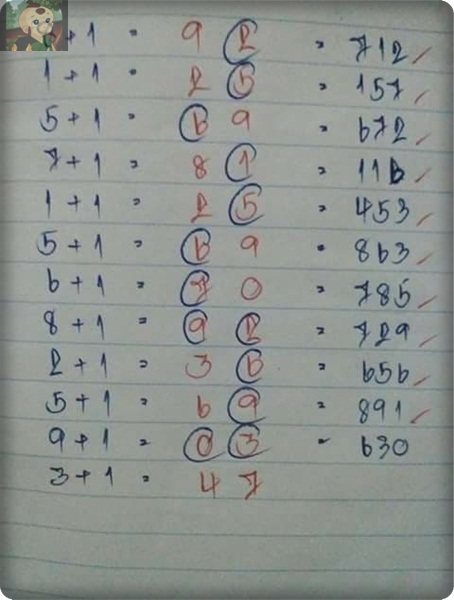 +1 = 9 2 = 712
1+1 = 2 5 = 157
5+1 = 6 9 = 672
7+1 = 8 1 = 116
1+1 = 2 5 = 453
5+1 = 6 9 = 863
6+1 = 7 0 = 785
8+1 = 9 2 = 729
2+1 = 3 6 = 656
5+1 = 6 9 = 891
9+1 = 0 3 = 630
3+1 = 4 7